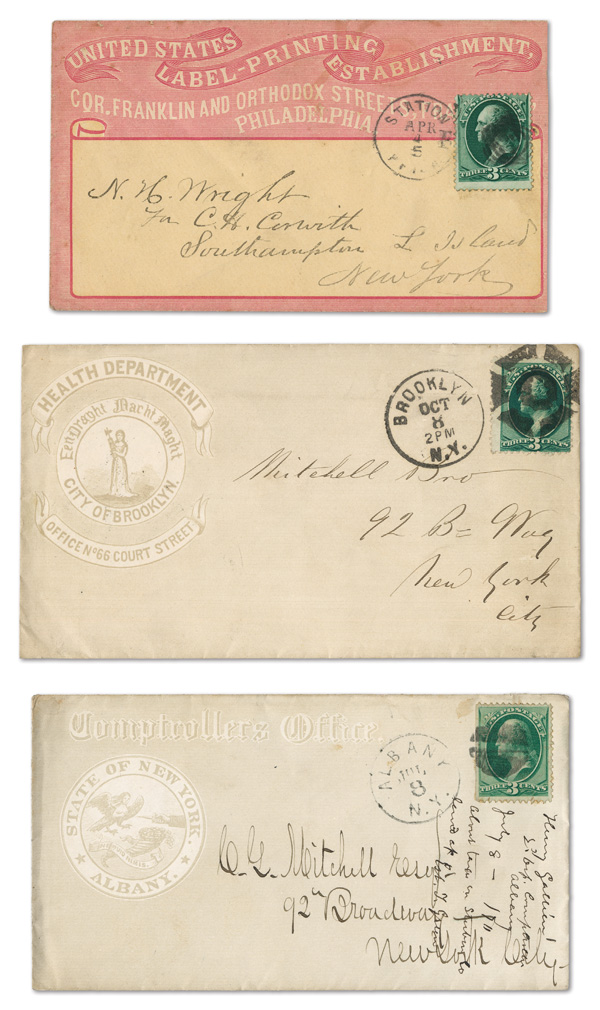 UNITED STATES
LABEL-PRINTING
ESTABLISHMENT,
COR. FRANKLIN AND ORTHODOX STREETS,
PHILADELPHIA
STATION
APR
5
U.S. POSTAGE
THREE 3 CENTS
N. H. Wright
For C. H. Corwith
Southampton L Island
New York
HEALTH DEPARTMENT
Eendraght Mackt Maght
CITY OF BROOKLYN.
OFFICE No 66 COURT STREET
BROOKLYN
OCT
8
2 PM
N.Y.
U.S. POSTAGE
THREE 3 CENTS
Mitchell Bro
92 B= Way
New York
City
Comptroller's Office.
STATE OF NEW YORK.
ALBANY.
ALBANY
JUL
8
N.Y.
U.S. POSTAGE
THREE 3 CENTS
C. G. Mitchell Esq
92 Broadway
New York City
Henry
Albany
July 8 – 17"
about tax on